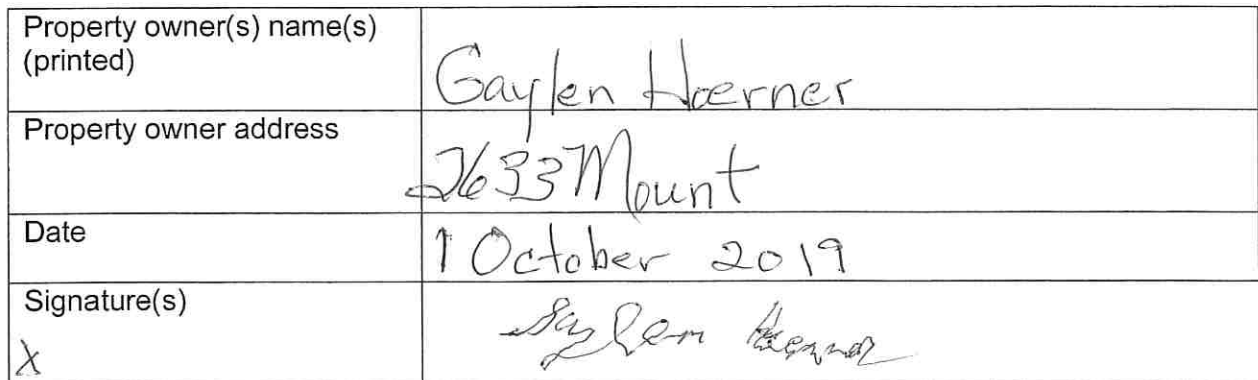 Property owner(s) name(s)
(printed)
Gaylen Hoerner
Property owner address
2633 Mount
Date
1 October 2019
Signature(s)
X
Gaylen Hoerner